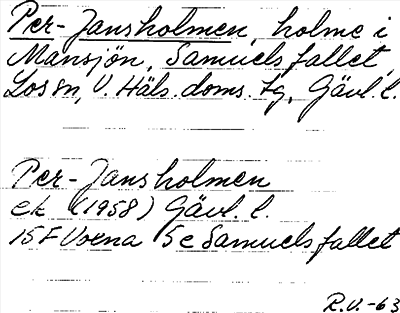 Per-Jansholmen, holme i
Mansjön, Samuelsfallet,
Los sn, V. Häls. doms. tg, Gävl. l.
Per-Jansholmen
ek (1958) Gävl. l.
15 F Voxna 5 e Samuelsfallet
R.V.-63